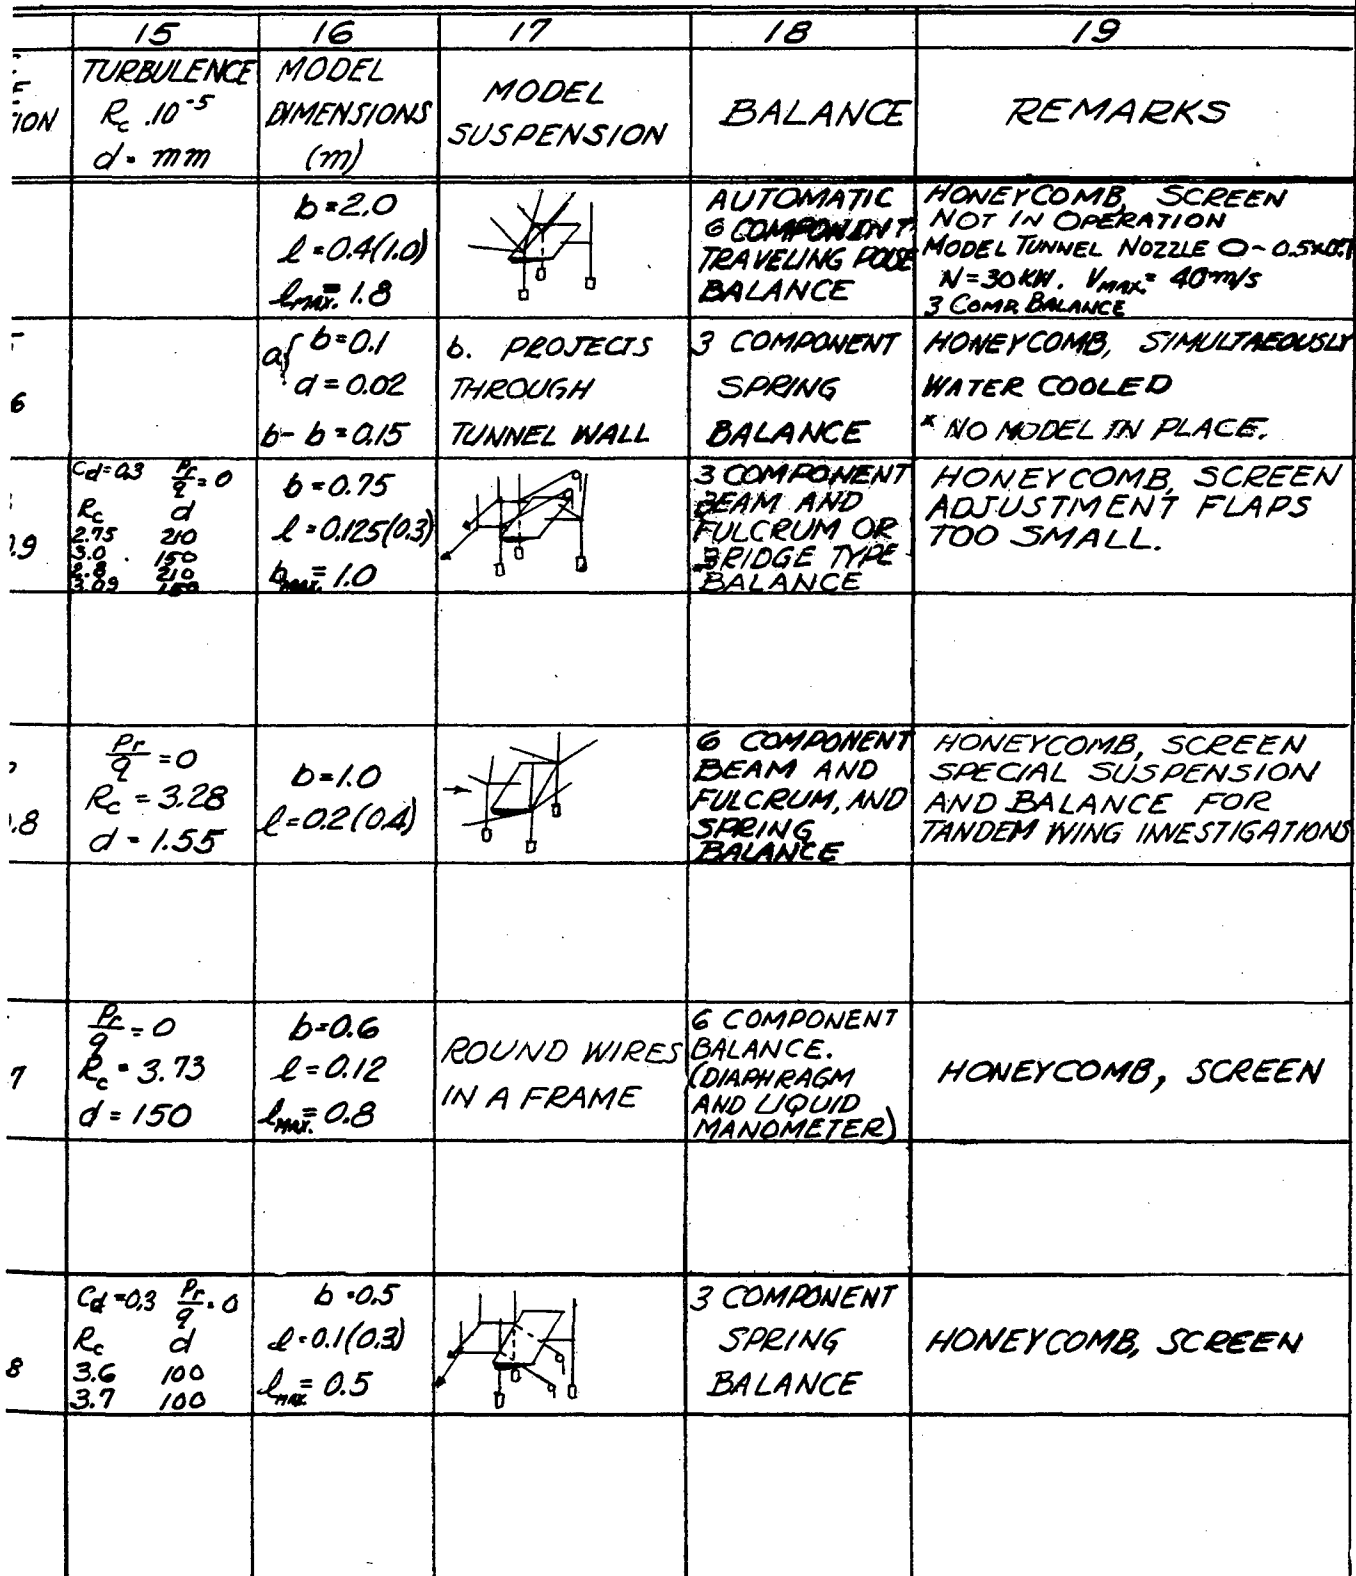 15 16 17 18 19
ION
TURBULENCE
R_c .10^-5
d = mm
MODEL
DIMENSIONS
(m)
MODEL
SUSPENSION
BALANCE
REMARKS
b=2.0
l=0.4(1.0)
l MAX. = 1.8
AUTOMATIC
6 COMPONENT
TRAVELING POISE
BALANCE
HONEYCOMB, SCREEN
NOT IN OPERATION
MODEL TUNNEL NOZZLE O~0.5x0.7
N=30 KW. V MAX. = 40 m/s
3 COMP. BALANCE
6
a{ b=0.1
d=0.02
b- b=0.15
b. PROJECTS
THROUGH
TUNNEL WALL
3 COMPONENT
SPRING
BALANCE
HONEYCOMB, SIMULTAEOUSLY
WATER COOLED
* NO MODEL IN PLACE.
.9
Cd=0.3 Pr/q=0
Rc d
2.75 210
3.0 150
2.8 210
3.09 150
b=0.75
l=0.125(0.3)
b MAX. = 1.0
3 COMPONENT
BEAM AND
FULCRUM OR
BRIDGE TYPE
BALANCE
HONEYCOMB, SCREEN
ADJUSTMENT FLAPS
TOO SMALL.
.8
Pr/q=0
Rc=3.28
d=1.55
b=1.0
l=0.2(0.4)
6 COMPONENT
BEAM AND
FULCRUM, AND
SPRING
BALANCE
HONEYCOMB, SCREEN
SPECIAL SUSPENSION
AND BALANCE FOR
TANDEM WING INVESTIGATIONS
7
Pr/q=0
Rc=3.73
d=150
b=0.6
l=0.12
l MAX. = 0.8
ROUND WIRES
IN A FRAME
6 COMPONENT
BALANCE.
(DIAPHRAGM
AND LIQUID
MANOMETER)
HONEYCOMB, SCREEN
8
Cd=0.3 Pr/q=0
Rc d
3.6 100
3.7 100
b=0.5
l=0.1(0.3)
l MAX. = 0.5
3 COMPONENT
SPRING
BALANCE
HONEYCOMB, SCREEN